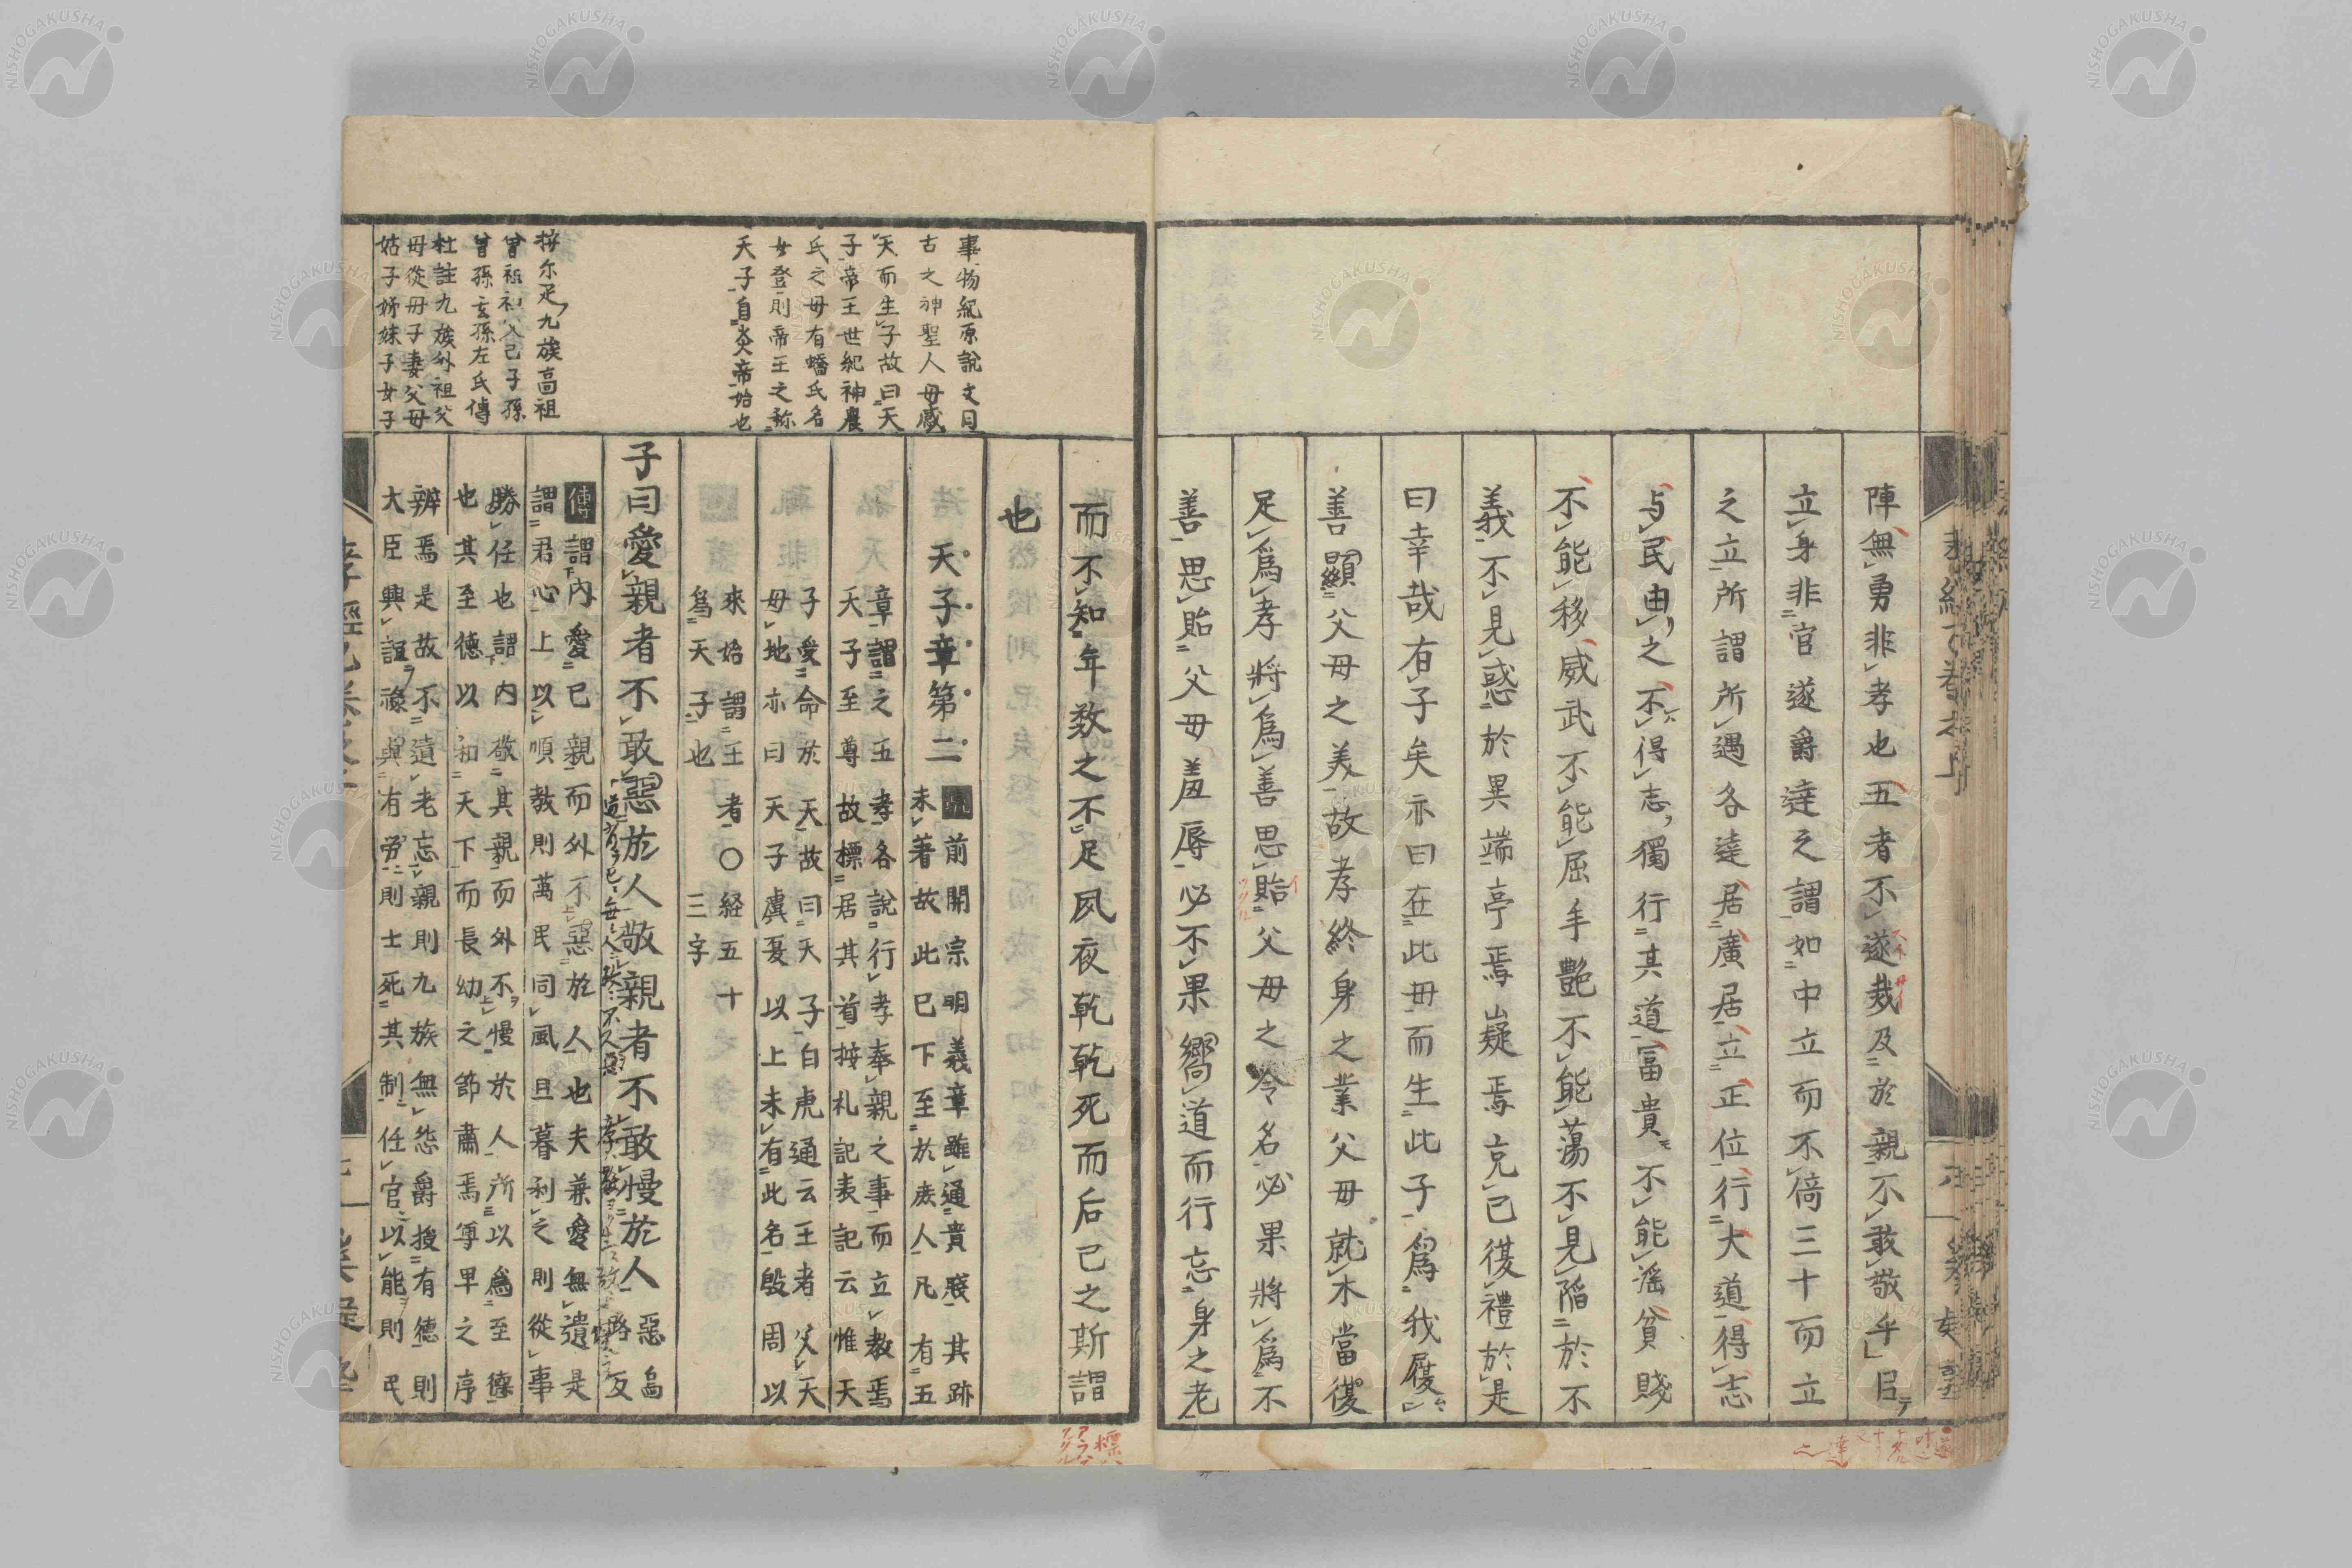 陣無勇非孝也五者不遂烖及於親不敢敬乎㠯
立身非官遂爵達之謂如中立而不倚三十而立
之立所謂所遇各達居廣居立正位行大道得志
与民由之不得志獨行其道冨貴不能滛貧賤
不能移威武不能屈手艶不能蕩不見陷於不
義不見惑於異端亭焉嶷焉克已復禮於是
曰幸哉有子矣亦曰在此母而生此子爲我履
善顯父母之美故孝終身之業父母就木當復
足爲孝將爲善思貽父母之令名必果將爲不
善思貽父母羞辱必不果嚮道而行忘身之老
而不知年數之不足夙夜乾乾死而后已之斯謂
也
事物紀原說文曰
古之神聖人母感
天而生子故曰天
子帝王世紀神農
氏之母有蟜氏名
女登則帝王之称
天子自炎帝始也
天子章第二
前開宗明義章雖通貴賤其跡
未著故此已下至於庶人凡有五
章謂之五孝各說行孝奉親之事而立教焉
天子至尊故標居其首按礼記表記云惟天
子受命於天故曰天子白虎通云王者父天
母地亦曰天子虞夏以上未有此名殷周以
來始謂王者〇経五十
爲天子也三字
按尓疋九族高祖
曾祖祖父己子孫
曾孫玄孫左氏傳
杜註九族外祖父
母從母子妻父母
姑子姊妹子女子
子曰愛親者不敢惡於人敬親者不敢慢於人
惡烏
路反
傳謂內愛已親而外不惡於人也夫兼愛無遺是
謂君心上以順教則萬民同風旦暮利之則從事
勝任也謂内敬其親而外不慢於人所以爲至德
也其至德以和天下而長幼之節肅焉尊卑之序
辨焉是故不遺老忘親則九族無怨爵授有德則
大臣興誼祿與有勞則士死其制任官以能則民